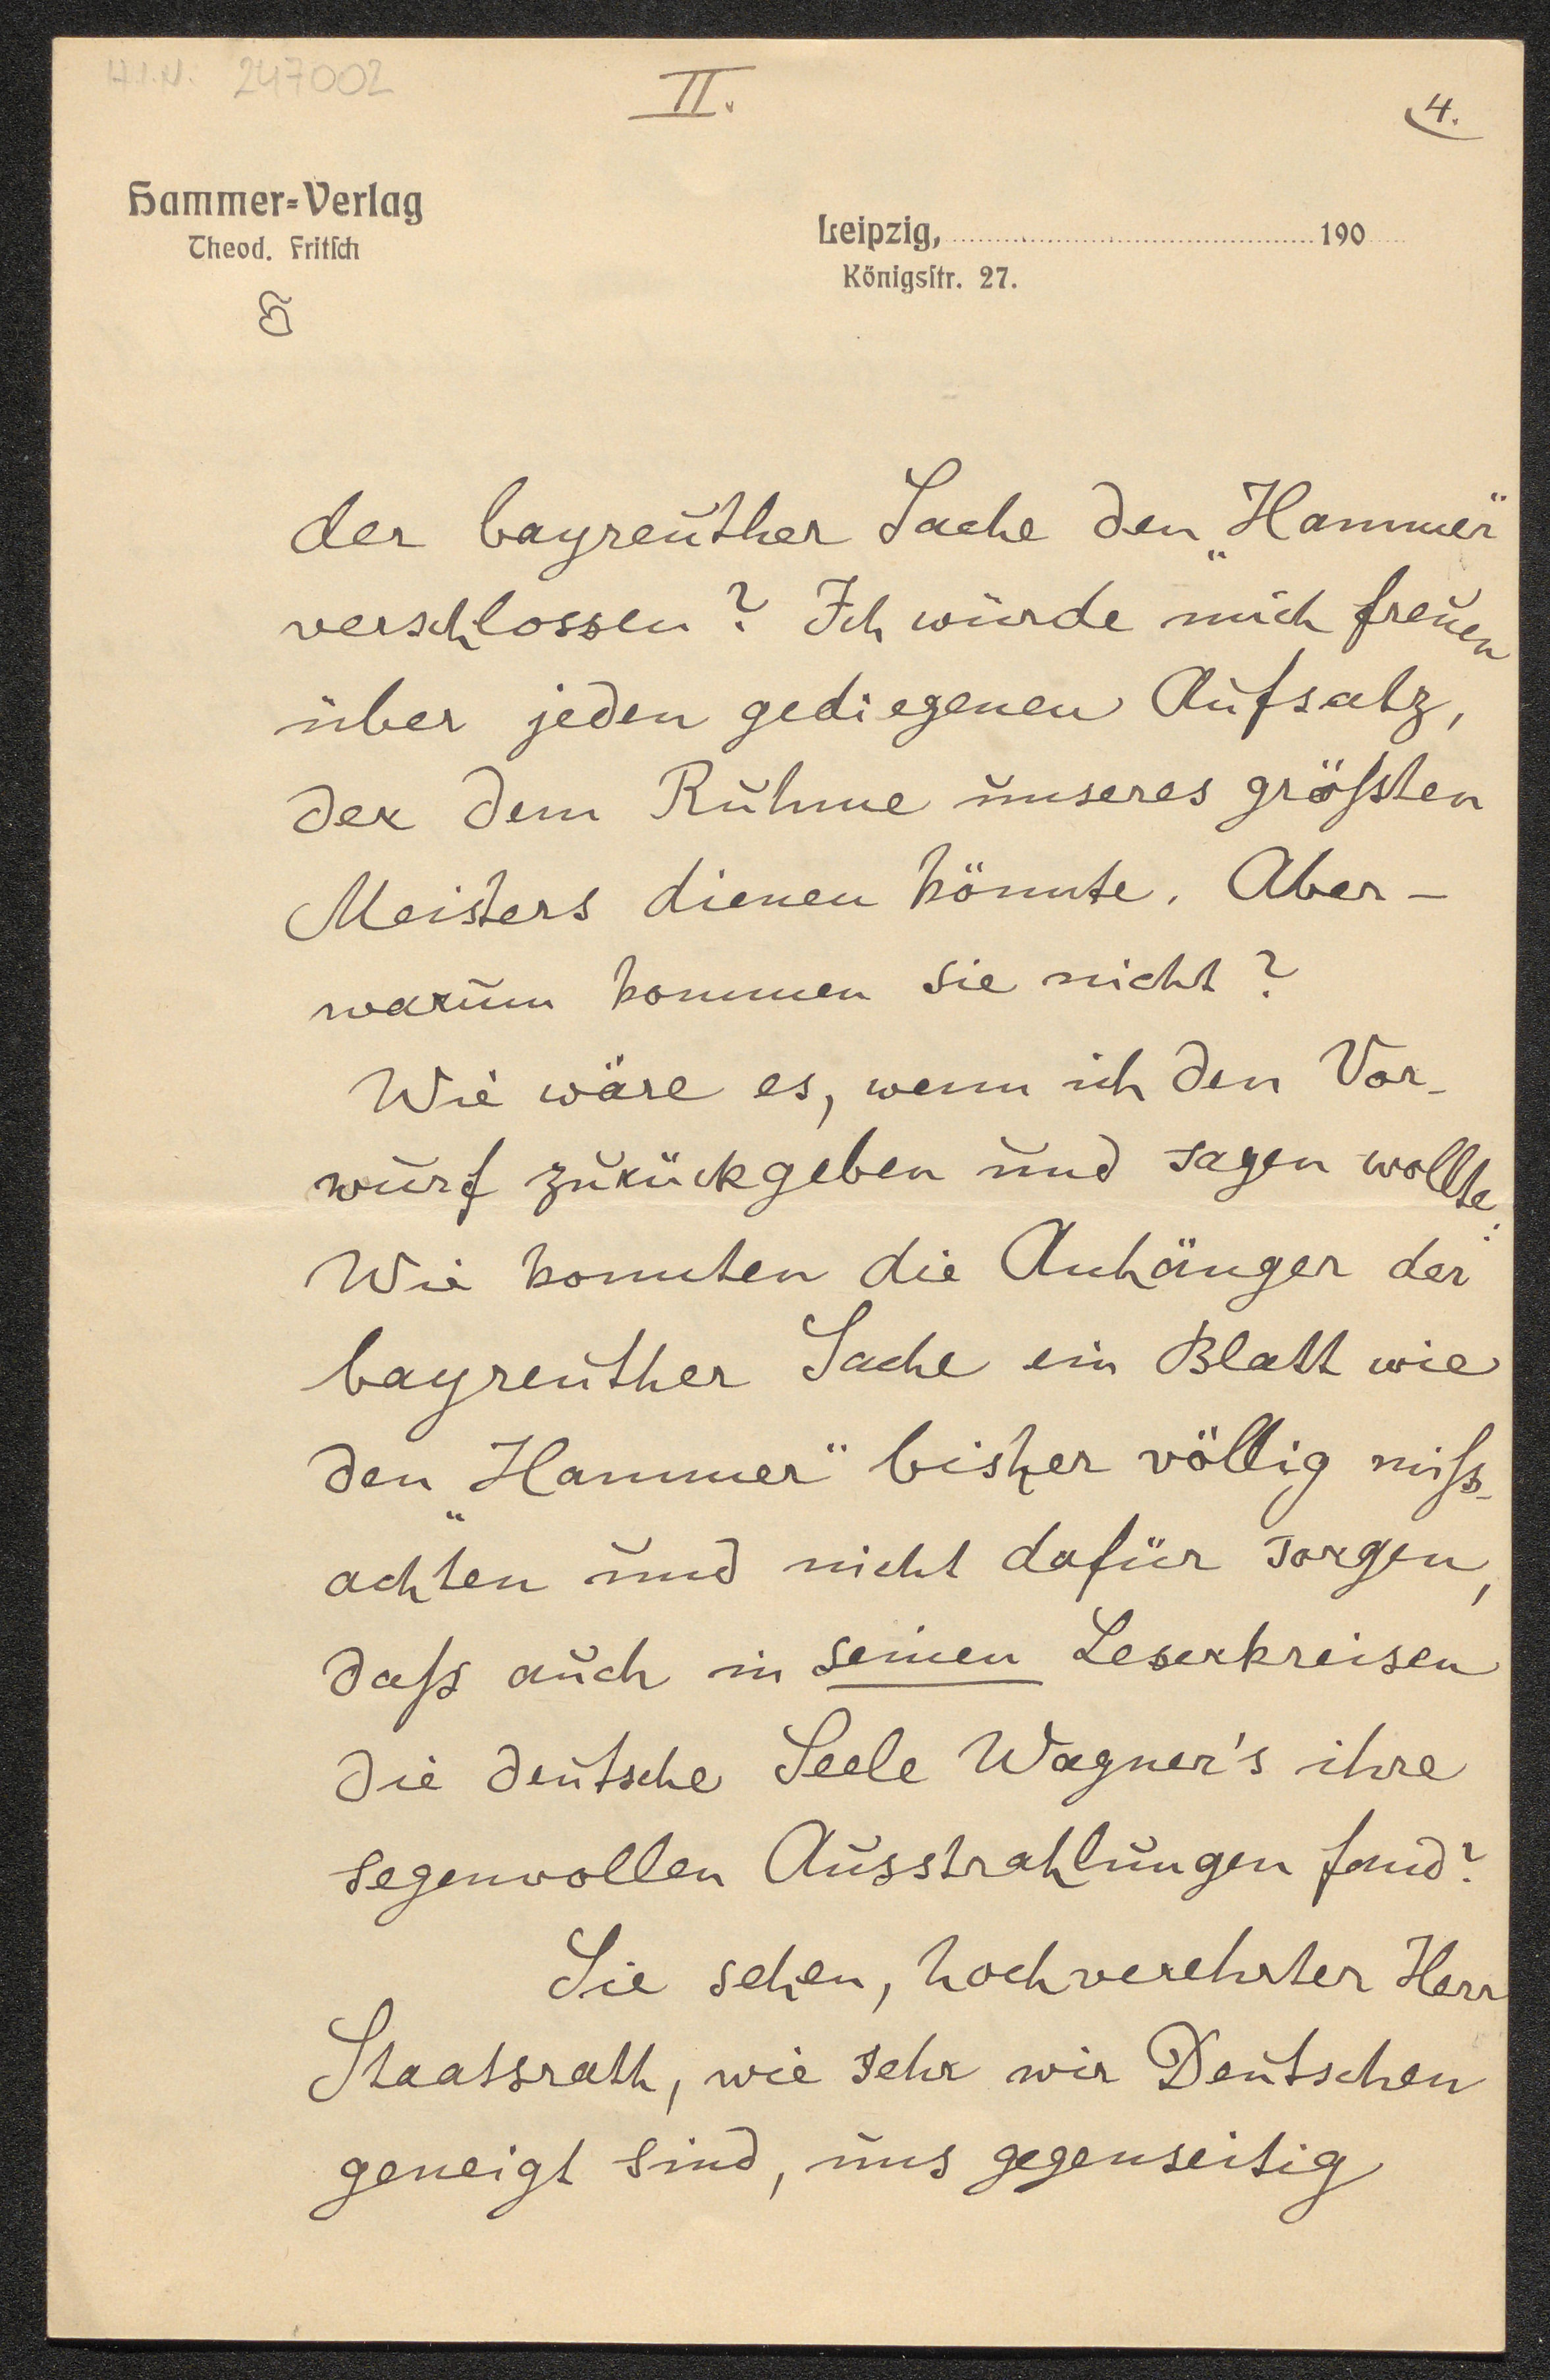 H.I.N. 247002
II.
4.
Hammer=Verlag
Theod. Fritsch
Leipzig, 190
Königstr. 27.
der bayreuther Sache den „Hammer“
verschlossen? Ich würde mich freuen
über jeden gediegenen Aufsatz,
der dem Ruhme unseres größten
Meisters dienen könnte. Aber –
warum kommen sie nicht?
Wie wäre es, wenn ich den Vor-
wurf zurückgeben und sagen wollte:
Wie konnten die Anhänger der
bayreuther Sache ein Blatt wie
den „Hammer“ bisher völlig miß-
achten und nicht dafür sorgen,
daß auch in seinen Leserkreisen
die deutsche Seele Wagner's ihre
segenvollen Ausstrahlungen fand?
Sie sehen, hochverehrter Herr
Staatsrath, wie sehr wir Deutschen
geneigt sind, uns gegenseitig